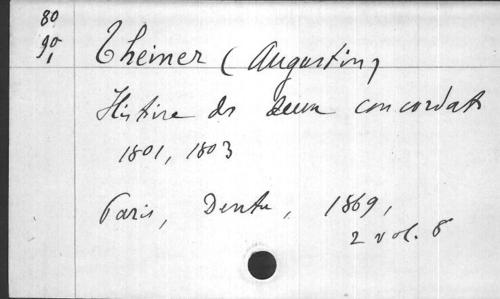 80
90
1
Theiner (Augustin)
Histoire des deux concordats
1801, 1803
Paris, Dentu, 1869,
2 vol. 8